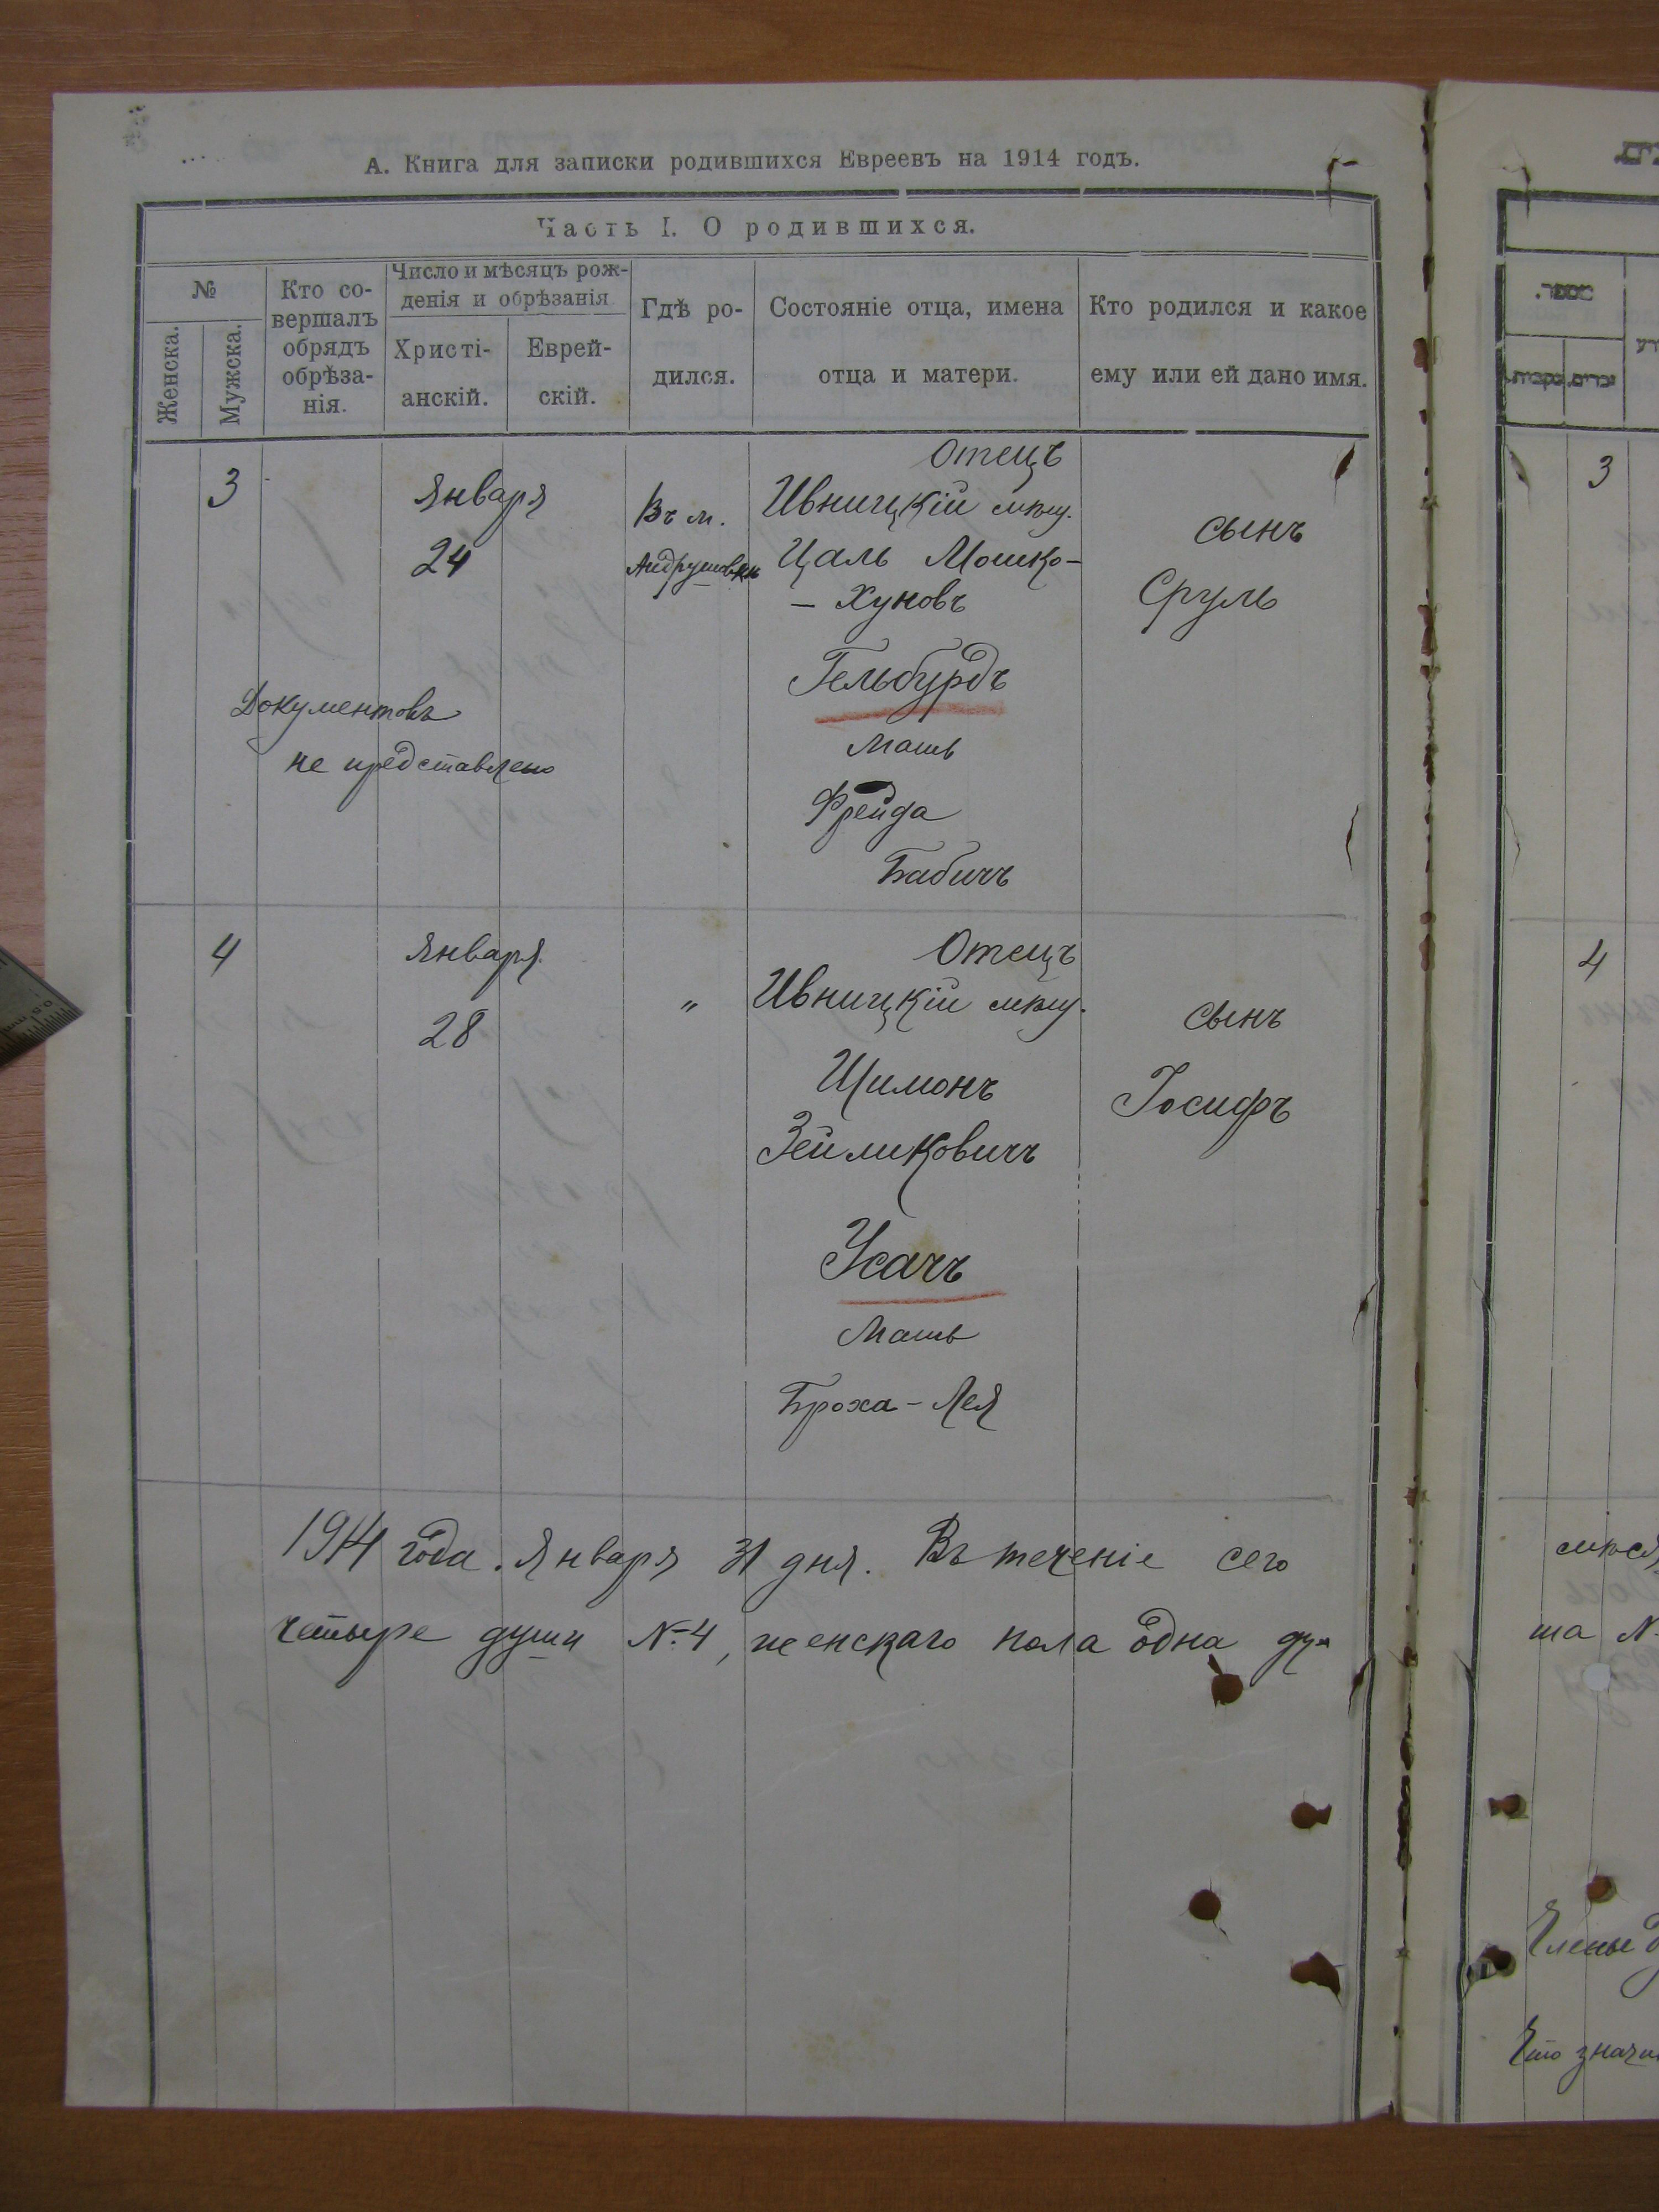 А. Книга для записки родившихся Евреевъ на 1914 годъ.
Часть I. О родившихся.
№
Женска.
Мужска.
Кто со-
вершалъ
обрядъ
обрѣза-
нія.
Число и мѣсяцъ рож-
денія и обрѣзанія
Христі-
анскій.
Еврей-
скій.
Гдѣ ро-
дился.
Состояніе отца, имена
отца и матери.
Кто родился и какое
ему или ей дано имя.
3
Января
24
Въ м.
Андрушовкѣ
Отецъ
Ивницкій мѣщ.
Цаль Мошко-
- Хуновъ
Гельбурдъ
Мать
Фрейда
Бабичъ
сынъ
Сруль
Документовъ
не представлено
4
Января
28
"
Отецъ
Ивницкій мѣщ.
Шимонъ
Зейликовичъ
Усачъ
Мать
Броха - Лея
сынъ
Іосифъ
1914 года. Января 31 дня. Въ теченіе сего
четыре души № 4, женскаго пола одна ду-
מספר.
זכרים
נקבות
3
4
мѣся
ша №
Члены
Что значи